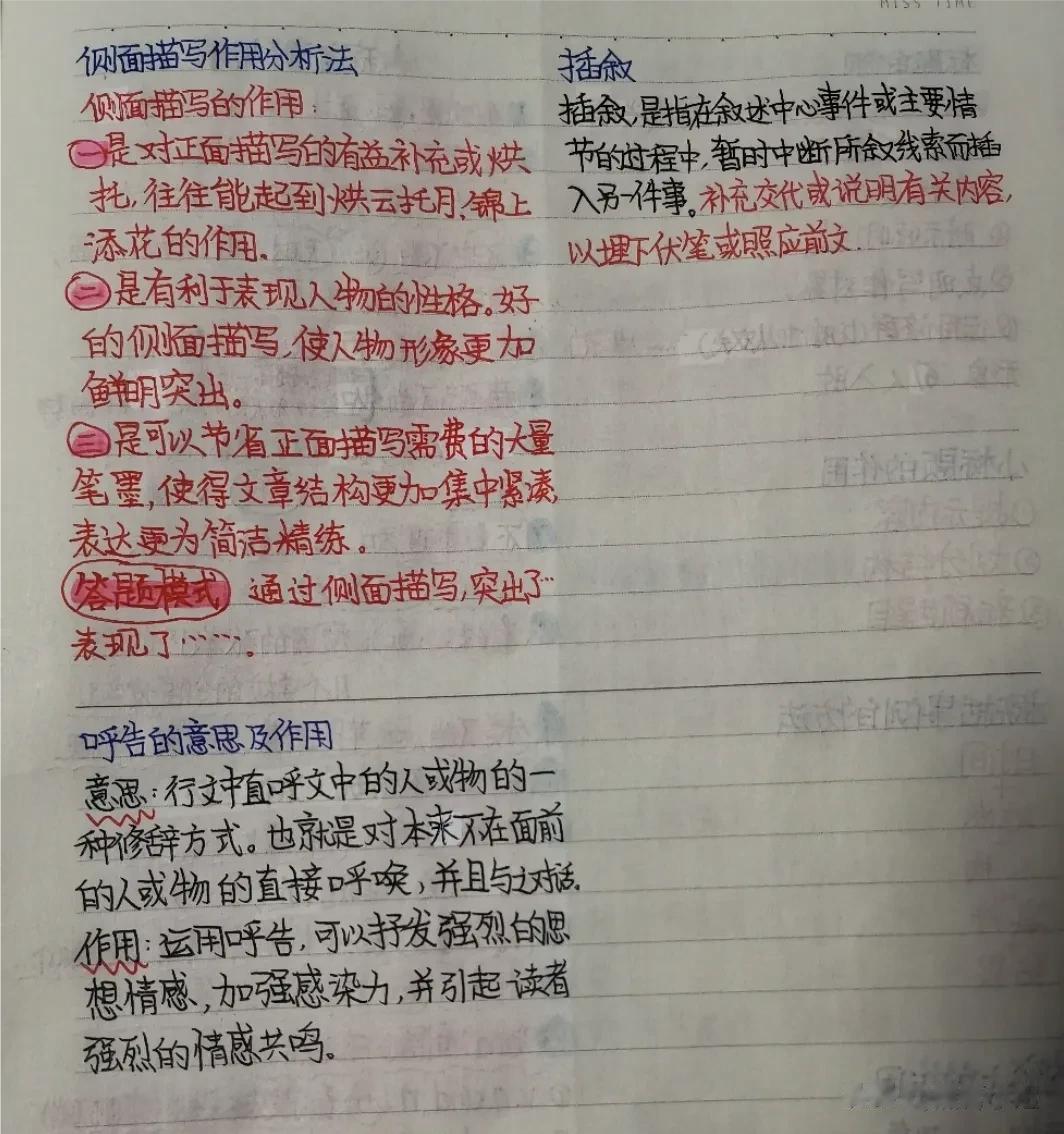 MISS TIME
侧面描写作用分析法
侧面描写的作用:
一是对正面描写的有益补充或烘
托,往往能起到烘云托月、锦上
添花的作用。
二是有利于表现人物的性格。好
的侧面描写,使人物形象更加
鲜明突出。
三是可以节省正面描写需费的大量
笔墨,使得文章结构更加集中紧凑,
表达更为简洁精练。
答题模式 通过侧面描写,突出了…
表现了……。
呼告的意思及作用
意思:行文中直呼文中的人或物的一
种修辞方式。也就是对本来不在面前
的人或物的直接呼唤,并且与之对话。
作用:运用呼告,可以抒发强烈的思
想情感,加强感染力,并引起读者
强烈的情感共鸣。
插叙
插叙,是指在叙述中心事件或主要情
节的过程中,暂时中断所叙线索而插
入另一件事。补充交代或说明有关内容,
以埋下伏笔或照应前文.